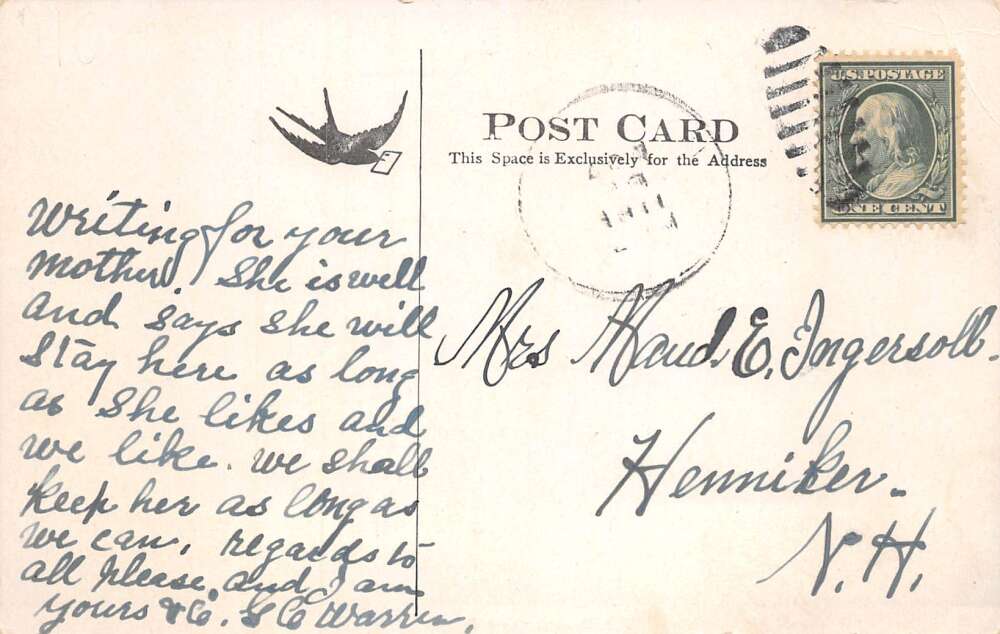 U.S. POSTAGE
ONE CENT
POST CARD
This Space is Exclusively for the Address
Writing for your
mother. She is well
and says she will
stay here as long
as she likes and
we like. We shall
keep her as long as
we can. regards to
all please. and I am
yours &c. Warren.
Mrs Maud E. Ingersoll.
Henniker.
N.H.